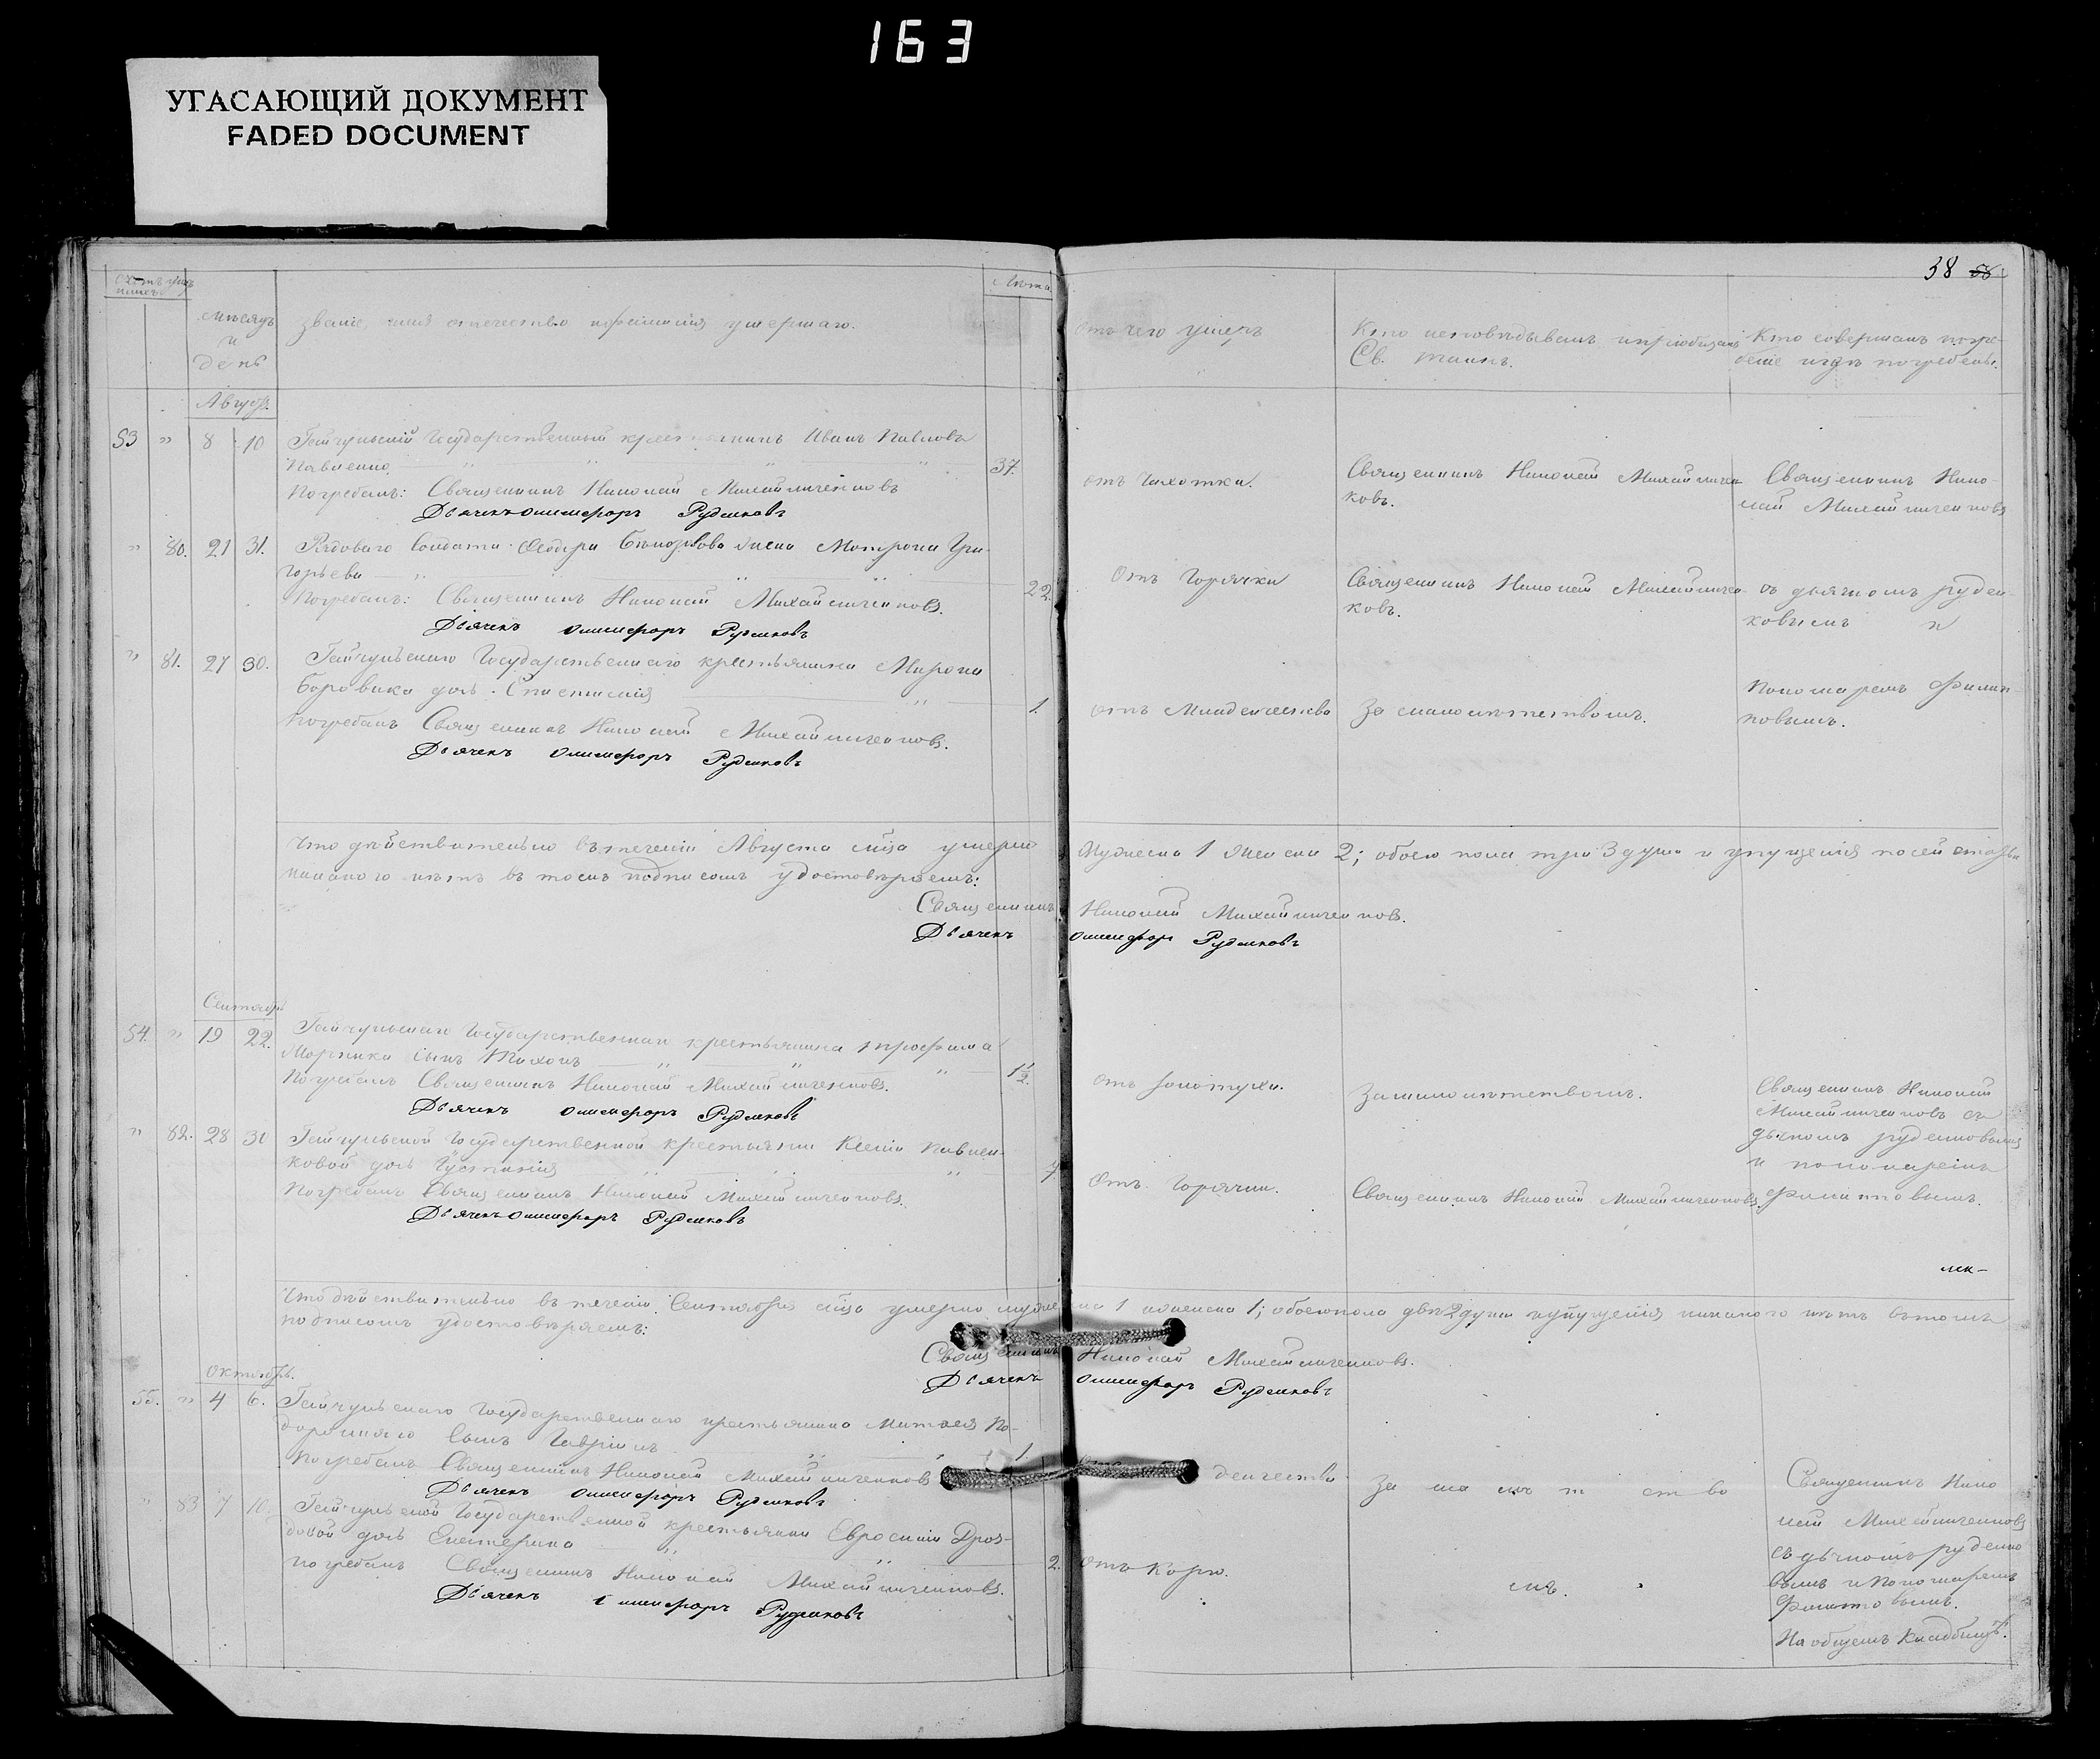 163
УГАСАЮЩИЙ ДОКУМЕНТ
FADED DOCUMENT
38 58
Счетъ умершихъ
Мѣсяцъ и день
Званіе, имя отечество и фамилія умершаго.
Лѣта
Отъ чего умеръ
Кто исповѣдывалъ и пріобщалъ Св. таинъ.
Кто совершалъ погребеніе и гдѣ погребены.
Августъ.
53 " 8 10 Гайчульскій Государственный крестьянинъ Иванъ Павловъ
Павленко 37.
Погребалъ: Священникъ Николай Михайличенковъ
Дьячекъ Олимфоръ Рудѣнковъ
отъ Чахотки.
Священникъ Николай Михайличенковъ.
Священникъ Николай Михайличенковъ
" 80. 21 31. Рядоваго Солдата Ѳедора жена Матрона Григорьева 22.
Погребалъ: Священникъ Николай Михайличенковъ.
Дьячекъ Олимфоръ Рудѣнковъ
Отъ Горячки
Священникъ Николай Михайличенковъ.
съ дьячкомъ Руденковымъ и
" 81. 27 30. Гайчульскаго Государственнаго крестьянина Мирона
Боровика дочь 1.
Погребалъ Священникъ Николай Михайличенковъ.
Дьячекъ Олимфоръ Рудѣнковъ
отъ Младенчества
За малолѣтствомъ.
Пономаремъ Филиповымъ.
Что дѣйствительно въ теченіи Августа мѣсяца умерло мужеска 1 женска 2; обоего пола три 3 души и упущенія по сей статьи
никакого нѣтъ въ томъ подписомъ удостовѣряемъ:
Священникъ Николай Михайличенковъ.
Дьячекъ Олимфоръ Рудѣнковъ
Сентябрь
54. " 19 22. Гайчульскаго Государственнаго крестьянина Трофима
сынъ Тихонъ 1 1/2.
Погребалъ Священникъ Николай Михайличенковъ.
Дьячекъ Олимфоръ Рудѣнковъ
отъ золотухи.
За малолѣтствомъ.
Священникъ Николай
Михайличенковъ съ
дьячкомъ Руденковымъ
и пономаремъ
Филиповымъ.
" 82. 28 31 Гайчульской Государственной крестьянки Ксеніи Павленковой дочь Іустинія 7
Погребалъ Священникъ Николай Михайличенковъ.
Дьячекъ Олимфоръ Рудѣнковъ
Отъ Горячки.
Священникъ Николай Михайличенковъ.
Что дѣйствительно въ теченіи Сентября мѣсяца умерло мужеска 1 женска 1; обоего пола двѣ 2 души и упущенія никакого нѣтъ въ томъ
подписомъ удостовѣряемъ:
Священникъ Николай Михайличенковъ.
Дьячекъ Олимфоръ Рудѣнковъ
Октябрь.
55. " 4 6. Гайчульскаго Государственнаго крестьянина Матвея
сынъ Гавріилъ 1.
Погребалъ Священникъ Николай Михайличенковъ
Дьячекъ Олимфоръ Рудѣнковъ
денчества.
За малѣтство
Священникъ Николай Михайличенковъ
съ дьячкомъ Руденковымъ и Пономаремъ
Филиповымъ.
На общемъ кладбищѣ.
" 83 7 10. Гайчульской Государственной крестьянки Евросиніи Дроздовой дочь Екатерина 2.
погребалъ Священникъ Николай Михайличенковъ.
Дьячекъ Олимфоръ Рудѣнковъ
Отъ Кори.
мъ.